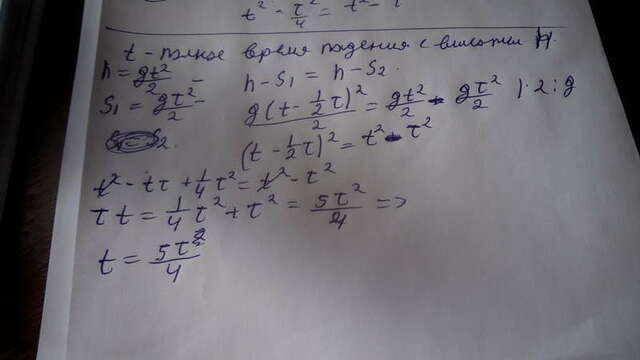 t² - τ²/4 = t² - τ
t - полное время падения с высоты H.
h = gt²/2 -    h - S₁ = h - S₂.
S₁ = gτ²/2 -    g(t - 1/2 τ)²/2 = gt²/2 - gτ²/2 | · 2 : g
S₂.    (t - 1/2 τ)² = t² - τ²
t² - tτ + 1/4 τ² = t² - τ²
τt = 1/4 τ² + τ² = 5τ²/4 =>
t = 5τ²/4